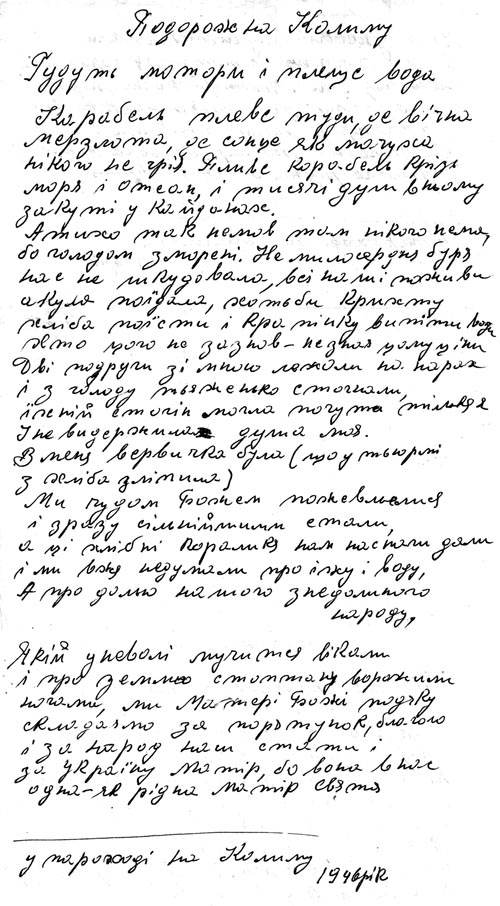 Подорож на Колиму
Гудуть мотори і плеще вода
Карабель пливе туди, де вічна
мерзлота, де сонце як мачуха
нікого не гріє. Пливе корабель крізь
моря і океан, і тисячі душ в ньому
закуті у кайданах.
А тихо так немов там нікого нема,
бо голодом зморені. Не милосердна буря
нас не шкодувала, всі наші поживи
акула поїдала, хотьби крихту
хліба поїсти і краплінку випити води
хто цього не зазнав – незнає цому ціни
Дві подруги зі мною лежали на нарах
і з голоду тяженько стогнали,
їхній стогін могла почути тільки я
І не видержила душа моя.
В мене вервичка була (що у тюрмі
з хліба зліпила)
Ми чудом Божем поживилися
і зразу сильнійшими стали,
а ці хлібні коралики нам наснаги дали
і ми вже недумали про їжу і воду,
А про долю нашого знедоленого
народу,
Який у неволі мучится віками
і про землю стоптану ворожими
ногами, ми Матері Божі подяку
складаємо за порятунок, благаємо
і за народ наш стати і
за Україну Матір, бо вона в нас
одна – як рідна Матір свята
у пароході на Колиму
1946 рік